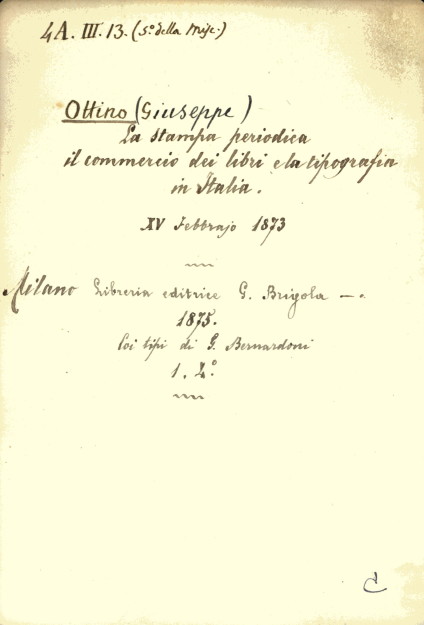 4A. III. 13. (5º della Misc.)
Ottino (Giuseppe)
La stampa periodica
il commercio dei libri e la tipografia
in Italia.
XV Febbrajo 1873
Milano Libreria editrice G. Brigola —.
1875.
Coi tipi di G. Bernardoni
1. 4º
C